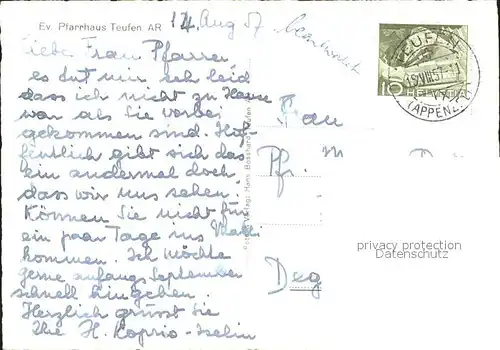 Ev. Pfarrhaus Teufen AR
14. Aug 57
beantwortet
Liebe Frau Pfarrer,
es tut mir sehr leid
dass ich nicht zu Hause
war als Sie vorbei
gekommen sind. Hof-
fentlich gibt sich das
ein andermal doch
dass wir uns sehen.
Können Sie nicht für
ein paar Tage ins
kommen. Ich möchte
gerne anfangs September
schnell hingehen.
Herzlich grüsst Sie
Ihre H. Koprio-Iselin
Verlag: Hans
TEUFEN
(APPENZELL)
10 HELVETIA
Frau
Pfr. M
Deg
privacy protection
Datenschutz